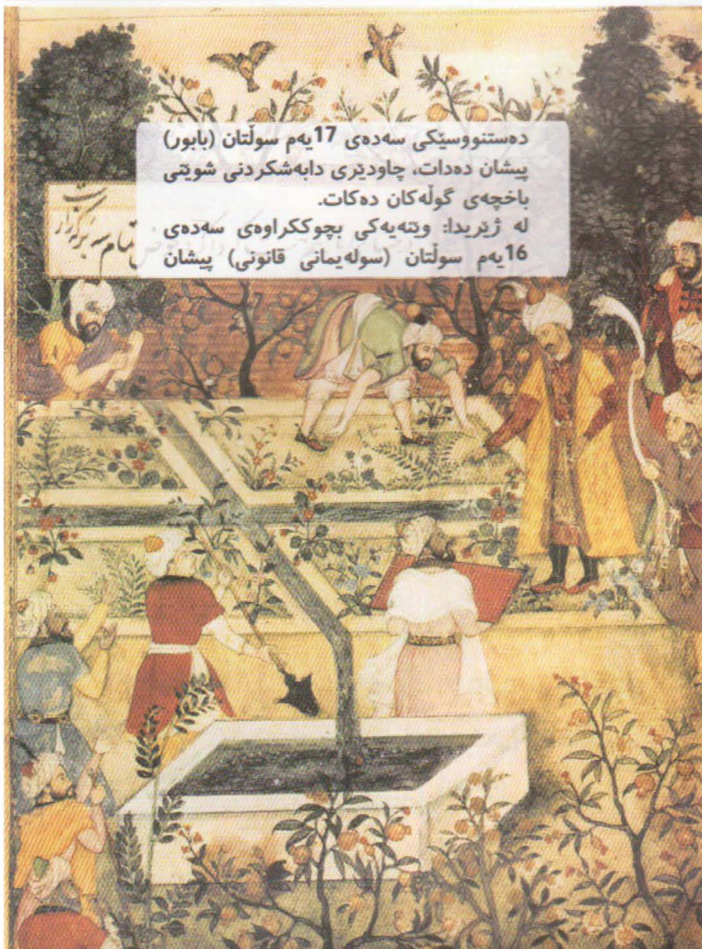 دەستنووسێکی سەدەی 17یەم سوڵتان (بابور)
پیشان دەدات، چاودێری دابەشکردنی شوێنی
باخچەی گوڵەکان دەکات.
لە ژێریدا: وێنەیەکی بچوککراوەی سەدەی
16یەم سوڵتان (سولەیمانی قانونی) پیشان